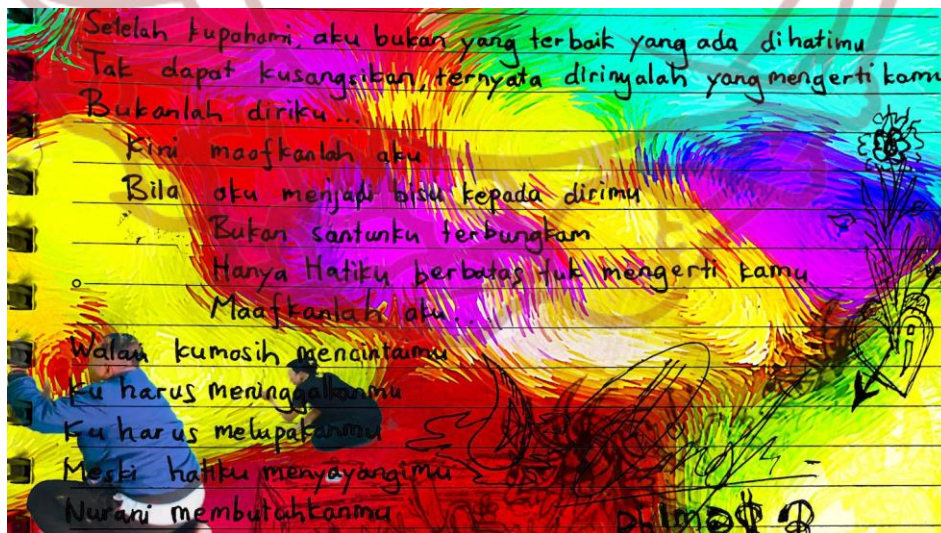 Setelah kupahami, aku bukan yang terbaik yang ada dihatimu
Tak dapat kusangsikan, ternyata dirinyalah yang mengerti kamu
Bukanlah diriku...
Kini maafkanlah aku
Bila aku menjadi bisu kepada dirimu
Bukan santunku terbungkam
Hanya Hatiku berbatas tuk mengerti kamu
Maafkanlah aku..
Walau kumasih mencintaimu
Ku harus meninggalkanmu
Ku harus melupakanmu
Meski hatiku menyayangimu
Nurani membutuhkanmu